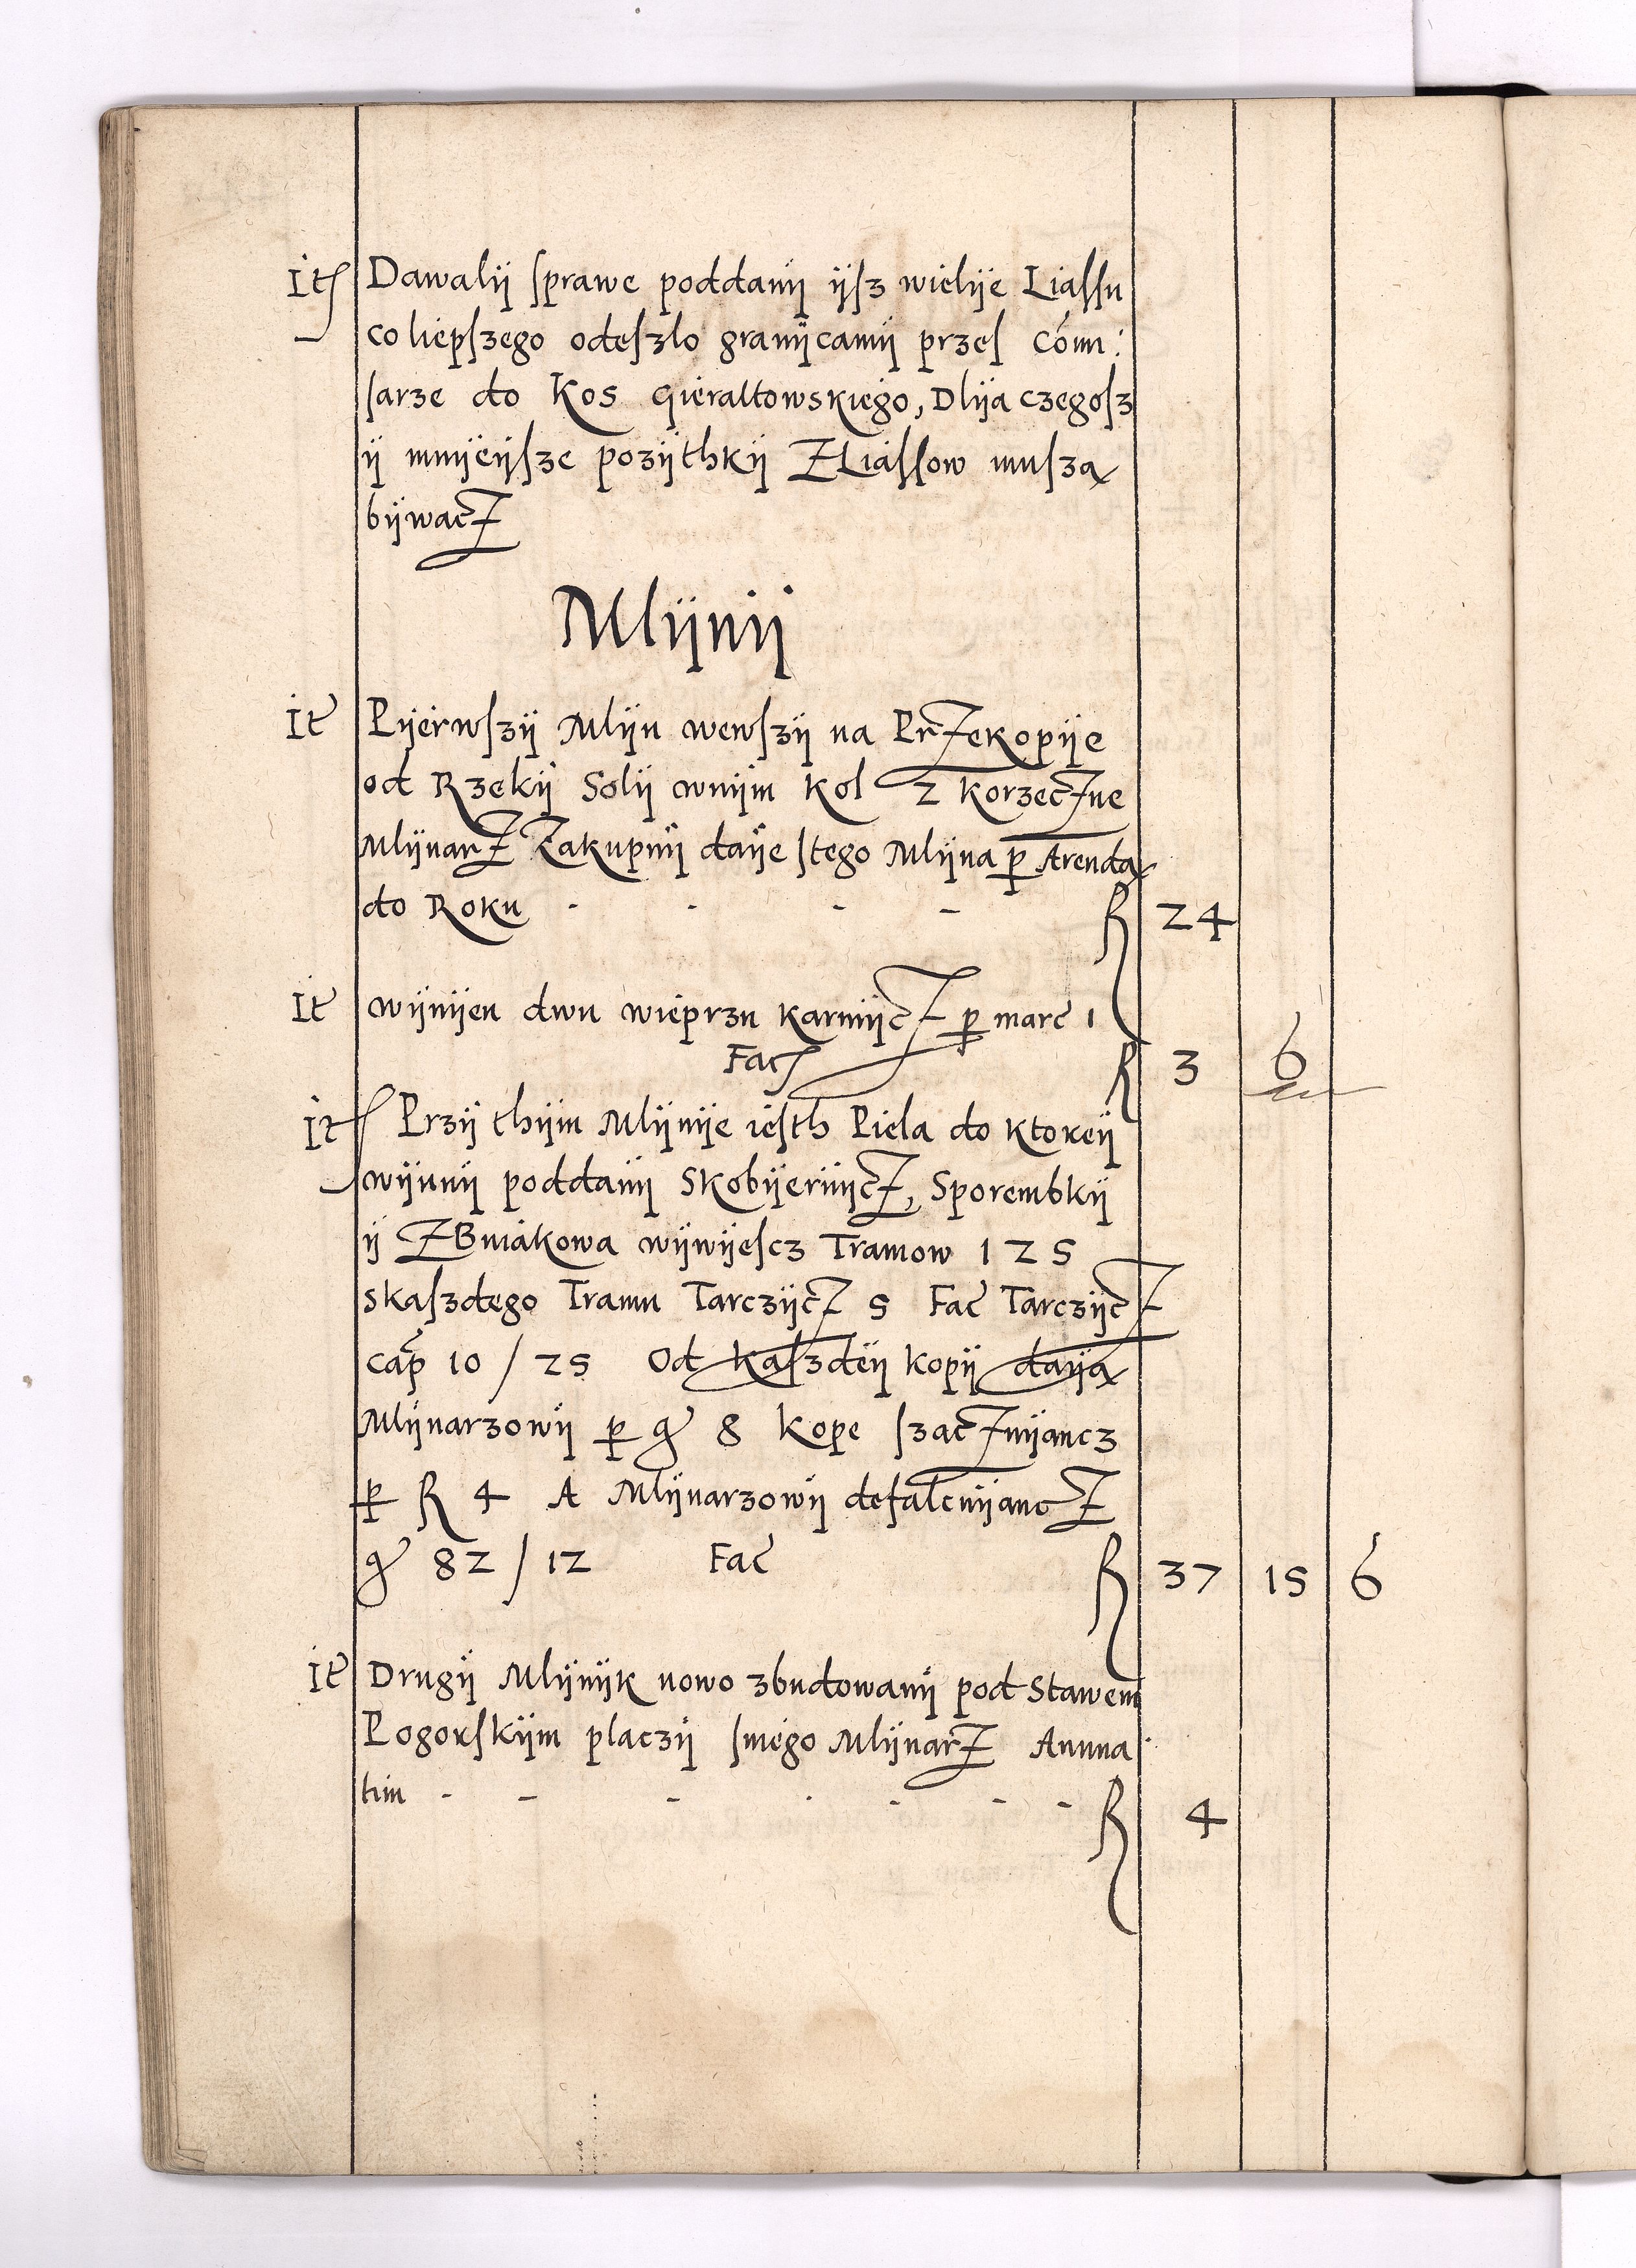 It Dawalÿ sprawe poddanÿ ÿsz wielÿe Liassu
co liepszego odeszlo granÿcamÿ przes Com:
sarze do Kos Gieraltowskiego, Dlÿa czegosz
ÿ mnÿeÿsze pozÿthkÿ Z Liassow musza
bÿwacz
Mlÿnÿ
It Pÿerwszÿ Mlÿn wewszÿ na Przekopÿe
od Rzekÿ Solÿ wnÿm Kol 2 korzeczne
Mlÿnarz Zakupnÿ daÿe stego Mlÿna p Arenda
do Roku - - - - R 24
It wÿnÿen dwu wieprzu karmÿcz p marc 1
Fac R 3 6
It Przÿ thÿm Mlÿnÿe iesth Piela do ktoreÿ
wÿnnÿ poddanÿ Skobÿernÿcz, Sporembkÿ
ÿ Z Bniakowa wÿwÿescz Tramow 125
skaszdego Tramu Tarczÿcz 5 Fac Tarczÿcz
cap 10 / 25 Od kaszdeÿ kopÿ daÿa
Mlÿnarzowÿ p g 8 kope szacznÿancz
p R 4 A Mlÿnarzowÿ defalcnÿancz
g 82 / 12 Fac R 37 15 6
It Drugÿ Mlÿnÿk nowo zbudowanÿ pod Stawem
Pogorskÿm placzÿ sniego Mlÿnarz Annua
tim - - - - - - - R 4